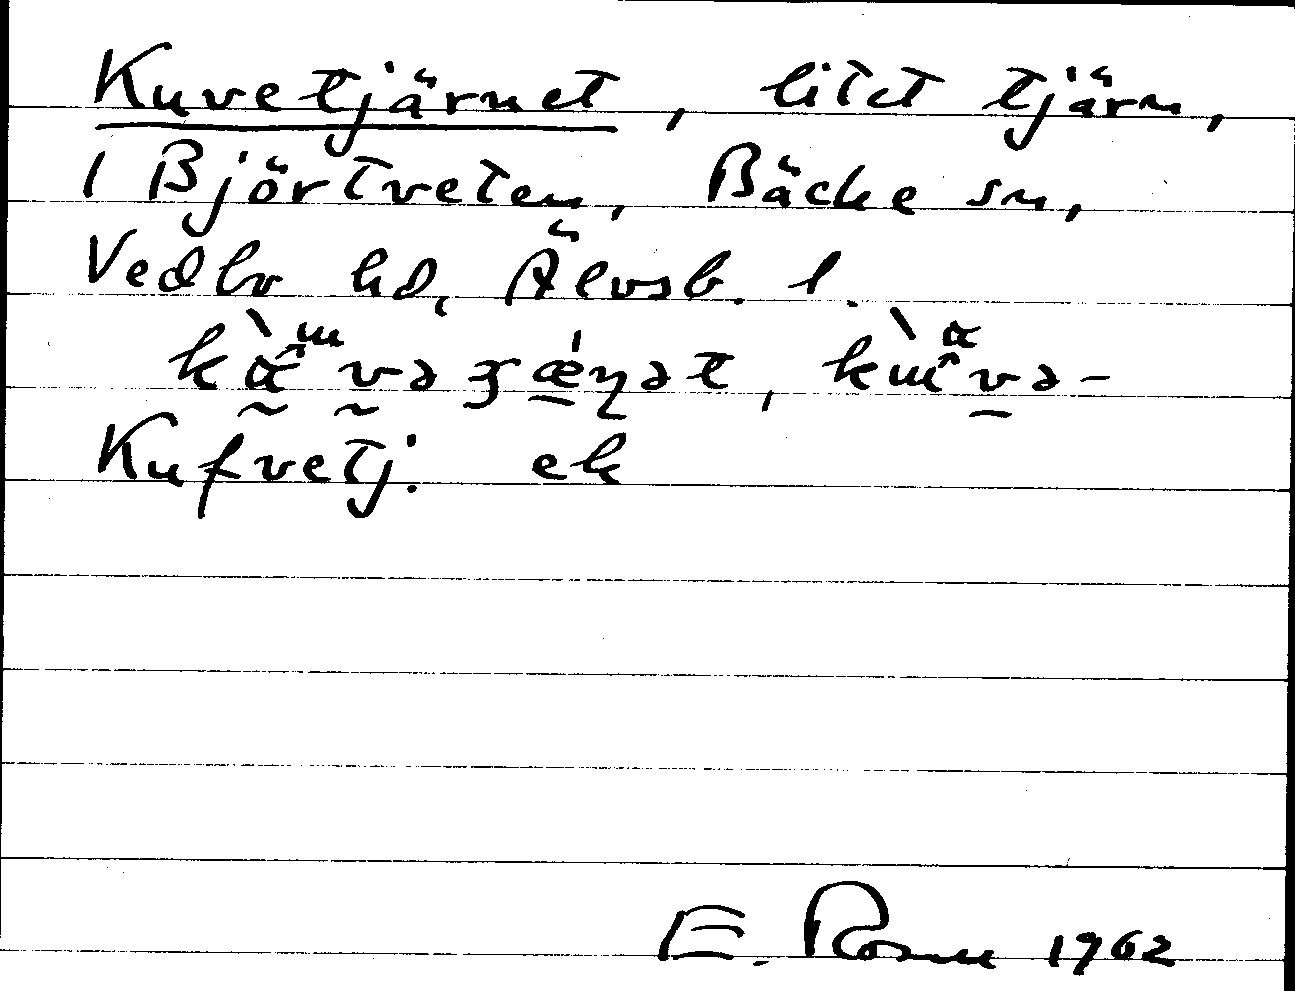 Kuvetjärnet, litet tjärn,
i Björtveten, Bäcke sn,
Vedbo hd, Älvsb. l.
Kufvetj. ek
E. Rosm 1962